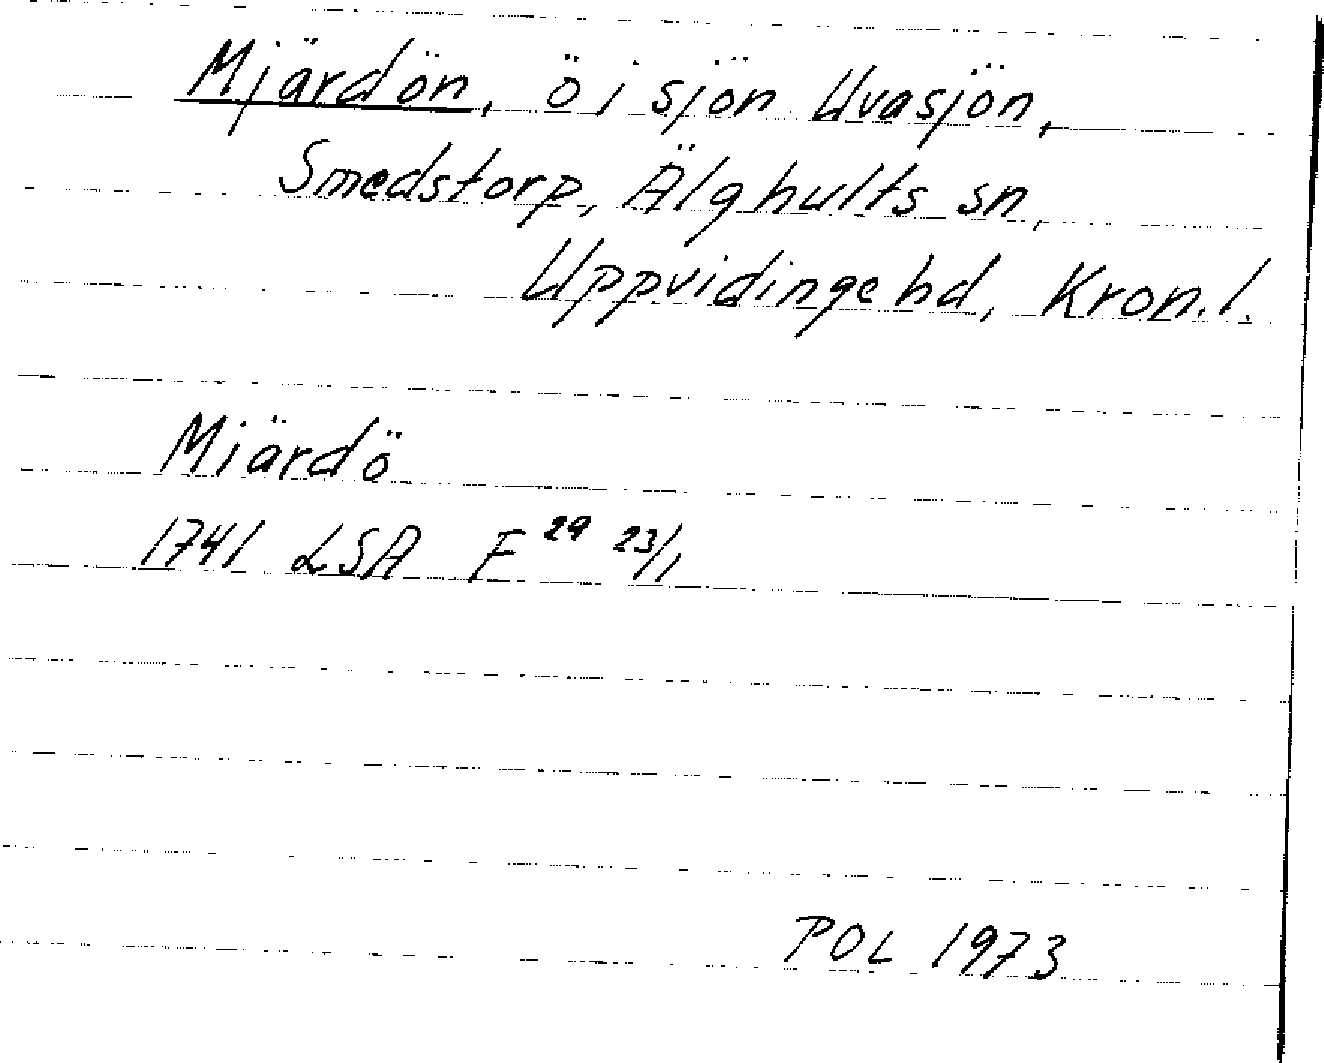 Mjärdön, ö i sjön Uvasjön,
Smedstorp, Älghults sn,
Uppvidinge hd, Kron. l.
Miärdö
1741 LSA F 29 23/1
POL 1973